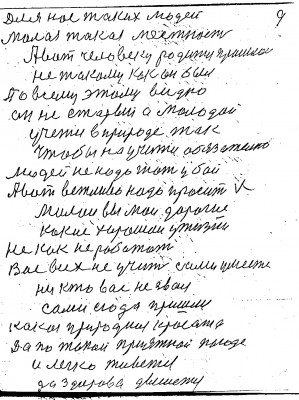 9
Для нас таких людей
Малая такая местность
А вот человеку родити пришлось
не такому как он был
По всему этому видно
он не старый а молодой
учети в природе так
чтобы научити обязательно
людей не надо тот убой
А вот вежливо надо просить
Милаи вы маи дорогие
какие хорошаи у жизни
не как не работат
Вас всих не учит сами умеете
ни кто вас не звал
сами сюда пришли
какая природная красата
да по такой приятной погоде
и легко живети
да здорова дышети